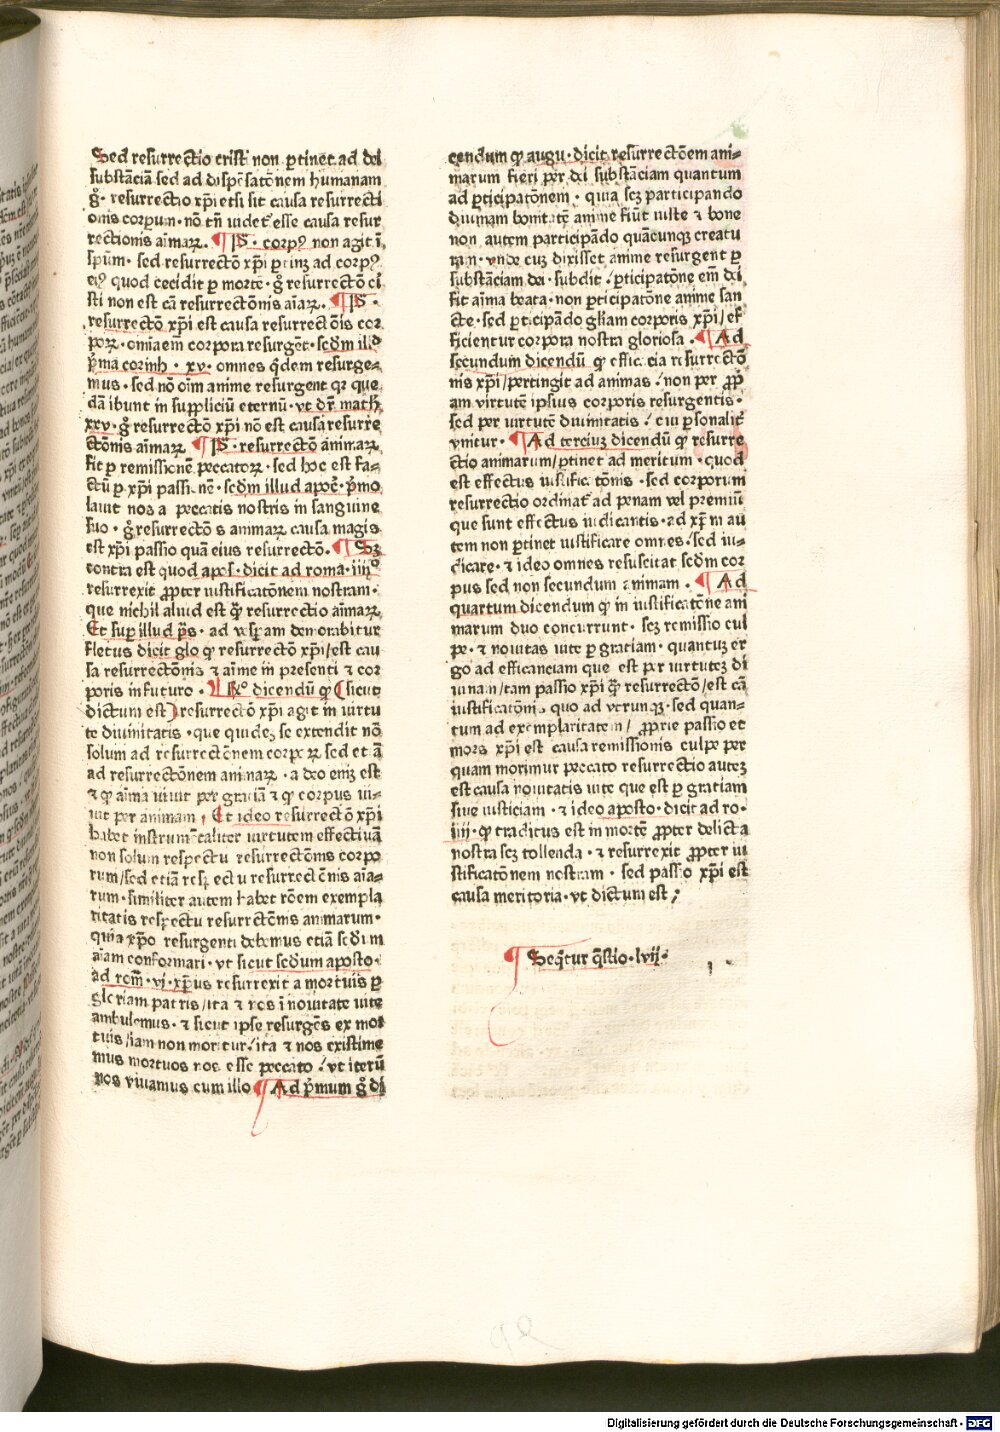 Sed resurrectio cristi non ꝑtinet ad dei
substãciã sed ad dispẽsatõnem humanam
gͦ· resurrectio xp̃i etsi sit causa resurrecti
onis corporum· nõ tñ uidet᷑ esse causa resur
rectionis aĩaꝝ. ¶ P̃· corpꝰ non agit ĩ
spũm· sed resurrectõ xp̃i ꝑtinꝫ ad corpꝰ
eiꝰ quod cecidit ꝑ mortẽ· gͦ resurrectõ cri
sti non est cã resurrectõnis aĩaꝝ. ¶ P̃·
resurrectõ xp̃i est causa resurrectõis cor
poꝝ· omnia em̃ corpora resurgẽt· scd̃m illd̃
p̃ma corinh· xv· omnes q̃dem resurge-
mus· sed nõ oĩm anime resurgent qr que
dã ibunt in suppliciũ eternũ· vt dr̃ math
xxv· gͦ resurrectõ xp̃i nõ est causa resurre
ctõnis aĩmaꝝ ¶ P̃· resurrectõ animaꝝ
fit ꝑ remissionẽ peccatoꝝ· sed hoc est fa-
ctũ ꝑ xp̃i passionẽ· scd̃m illud apoc̃· p̃mo
lauit nos a peccatis nostris in sanguine
suo· gͦ resurrectõ s animaꝝ causa magis
est xp̃i passio quã eius resurrectõ. ¶ Sꝫ
contra est quod apos̃· dicit ad roma· iiijͦ
resurrexit ꝓpter iustificatõnem nostram·
que nichil aliud est q̃ʒ resurrectio aĩmaꝝ
Et suꝑ illud p̃s· ad vesperam demorabitur
fletus dicit glo ꝙ resurrectõ xp̃i/est cau
sa resurrectõnis ⁊ aĩme in presenti ⁊ cor
poris in futuro· ¶ Rͦ dicendũ ꝙ (sicut
dictum est) resurrectõ xp̃i agit in uirtu
te diuinitatis· que quideʒ se extendit nõ
solum ad resurrectõnem corpoꝝ sed et ĩã
ad resurrectõnem animaꝝ· a deo enĩʒ est
⁊ ꝙ aĩma uiuit per graciã ⁊ ꝙ corpus ui-
uit per animam· Et ideo resurrectõ xp̃i
habet instrumẽtaliter uirtutem effectiuã
non solum respectu resurrectõnis corpo
rum/sed etiã respectu resurrectõnis aĩa-
rum· similiter autem habet rõem exempla
ritatis respectu resurrectõnis animarum·
quia xp̃o resurgenti debemus etiã scd̃um
aĩam conformari· vt sicut scd̃um aposto·
ad rom̃· vi· xp̃us resurrexit a mortuis ꝑ
gloriam patris/ita ⁊ nos ĩ nouitate uite
ambulemus· ⁊ sicut ipse resurgẽs ex mor
tuis/iam non moritur/ita ⁊ nos existime
mus mortuos nos esse peccato/vt iterũ
nos viuamus cum illo ¶ Ad p̃mum gͦ di
cendum ꝙ augu· dicit resurrectõem ani-
marum fieri per dei substãciam quantum
ad ꝑticipatõnem· quia scꝫ participando
diuinam bonitatẽ anime fiũt iuste ⁊ bone
non autem participãdo quãcunqꝫ creatu
ram· vnde cuʒ dixisset anime resurgent ꝑ
substãciam dei· subdit/ꝑticipatõne em̃ dei
fit aĩma beata· non ꝑticipatõne anime san
cte· sed ꝑticipãdo gliam corporis xp̃i/ef
ficientur corpora nostra gloriosa· ¶ Ad
secundum dicendũ ꝙ efficacia resurrectõ
nis xp̃i/pertingit ad animas/non per ꝓp̃
am virtutẽ ipsius corporis resurgentis·
sed per virtutẽ diuinitatis/cui ꝑsonalit᷑
vnitur· ¶ Ad terciuʒ dicendũ ꝙ resurre
ctio animarum/ꝑtinet ad meritum· quod
est effectus iustificatõnis· sed corporum
resurrectio ordinat᷑ ad penam vel premiũ
que sunt effectus iudicantis· ad xp̃m au
tem non ꝑtinet iustificare omnes/sed iu-
dicare· ⁊ ideo omnes resuscitat scd̃m cor
pus sed non secundum animam· ¶ Ad
quartum dicendum ꝙ in iustificatõne ani
marum duo concurrunt· scꝫ remissio cul
pe· ⁊ nouitas uite ꝑ gratiam· quantuʒ er
go ad efficanciam que est per virtuteʒ di
uinam/tam passio xp̃i q̃ʒ resurrectõ/est cã
iustificatõnis quo ad vtrunqꝫ· sed quan-
tum ad exemplaritatem/ ꝓprie passio et
mors xp̃i est causa remissionis culpe per
quam morimur peccato resurrectio auteʒ
est causa nouitatis uite que est ꝑ gratiam
siue iusticiam· ⁊ ideo aposto· dicit ad ro-
iiij· ꝙ traditus est in mortẽ ꝓpter delicta
nostra scꝫ tollenda· ⁊ resurrexit ꝓpter iu
stificatõnem nostram· sed passio xp̃i est
causa meritoria· vt dictum est;
¶ Seq̃tur q̃stio· lvij·
Digitalisierung gefördert durch die Deutsche Forschungsgemeinschaft · DFG